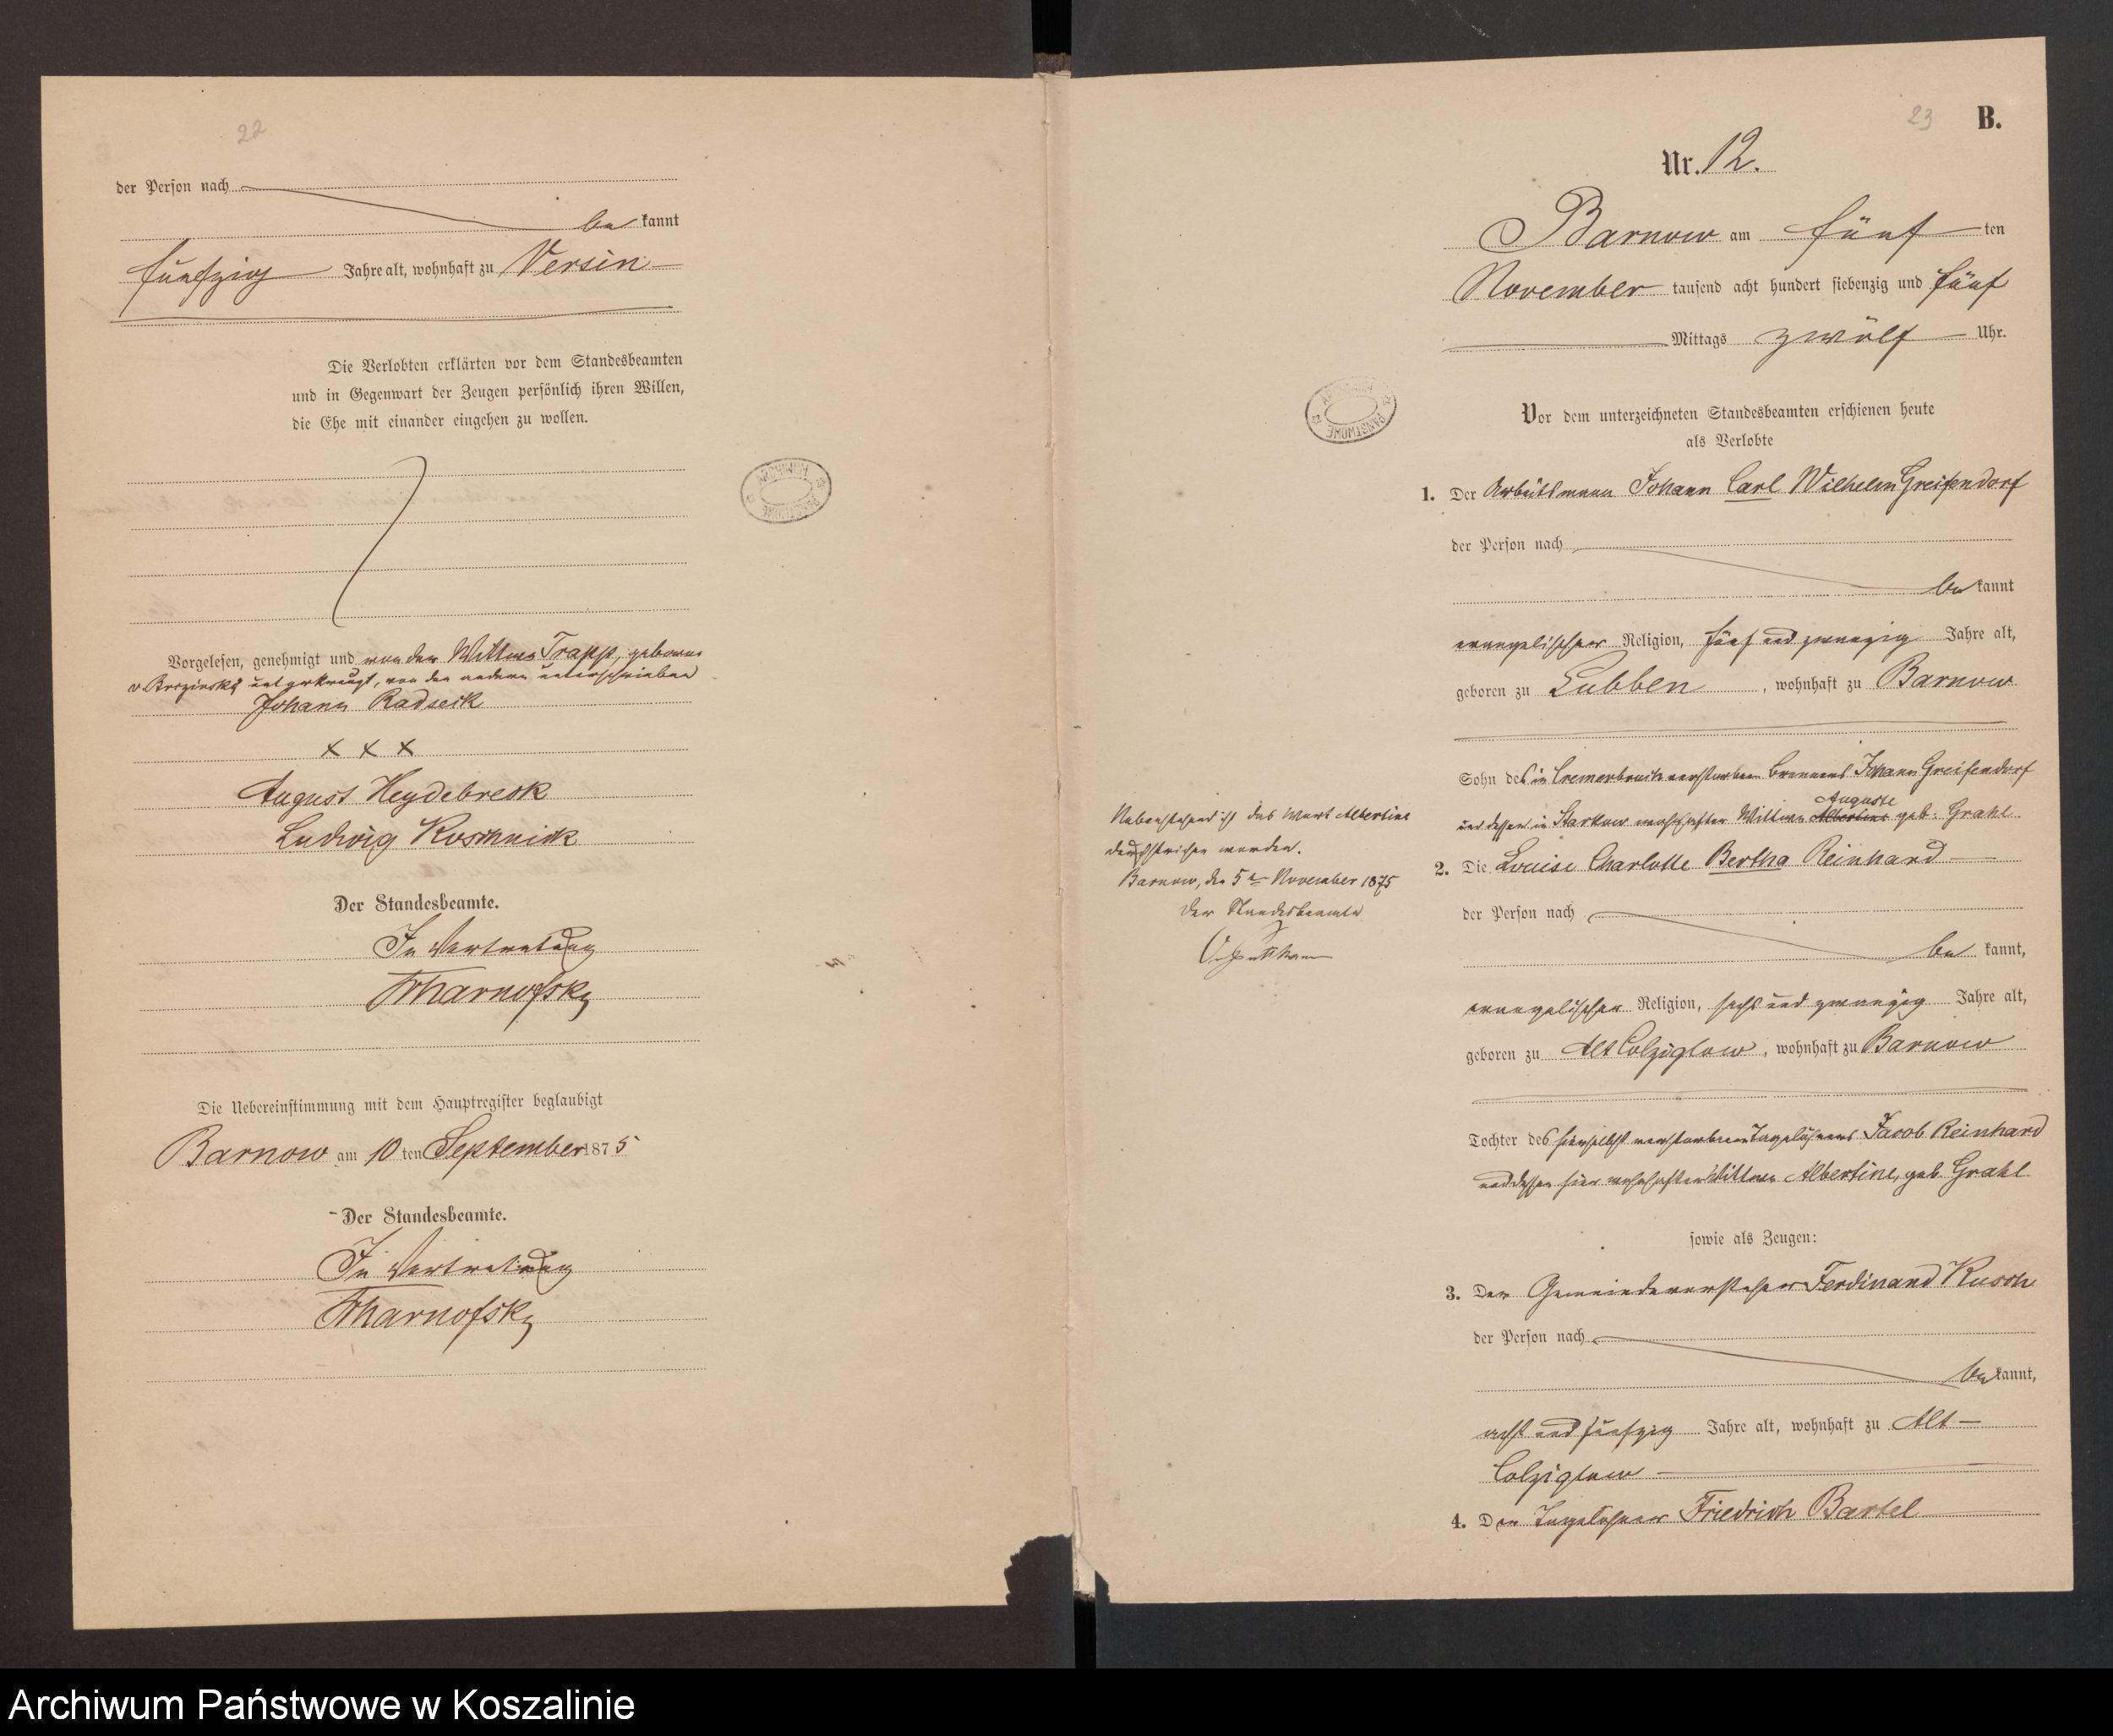 22
der Person nach
be kannt
fünfzig Jahre alt, wohnhaft zu Versin
Die Verlobten erklärten vor dem Standesbeamten
und in Gegenwart der Zeugen persönlich ihren Willen,
die Ehe mit einander eingehen zu wollen.
ARCHIWUM
Vorgelesen, genehmigt und von der Wittwe Trapp, geborne
unterkreuzt, von den andern unterschrieben
Johann Radseck
x x x
August Heydebreck
Ludwig Koschnick
Der Standesbeamte.
In Vertretung
Tharnofsky
Die Uebereinstimmung mit dem Hauptregister beglaubigt
Barnow am 10 ten September 1875
Der Standesbeamte.
In Vertretung
Tharnofsky
23 B.
Nr. 12.
Barnow am fünf ten
November tausend acht hundert siebenzig und fünf
Mittags zwölf Uhr.
PAŃSTWOWE
Vor dem unterzeichneten Standesbeamten erschienen heute
als Verlobte
1. Der Arbeitsmann Johann Carl Wilhelm Greifendorf
der Person nach
be kannt
evangelischer Religion, fünf und zwanzig Jahre alt,
geboren zu Lubben, wohnhaft zu Barnow
Sohn des in Cremerbruch verstorbenen Brenners Johann Greifendorf
Auguste
und dessen in Starkow wohnhaften Wittwe Albertine geb. Grahl
2. Die Louise Charlotte Bertha Reinhard
der Person nach
be kannt,
evangelischer Religion, sechs und zwanzig Jahre alt,
geboren zu Alt Colziglow, wohnhaft zu Barnow
Tochter des hierselbst verstorbenen Tagelöhners Jacob Reinhard
und dessen hier wohnhaften Wittwe Albertine, geb. Grahl
sowie als Zeugen:
3. Der Gemeindevorsteher Ferdinand Kusch
der Person nach
be kannt,
acht und fünfzig Jahre alt, wohnhaft zu Alt-
Colziglow
4. Der Tagelöhner Friedrich Bartel
Nebenstehend ist das Wort Albertine
durchstrichen worden.
Barnow, den 5ten November 1875
Der Standesbeamte
Archiwum Państwowe w Koszalinie